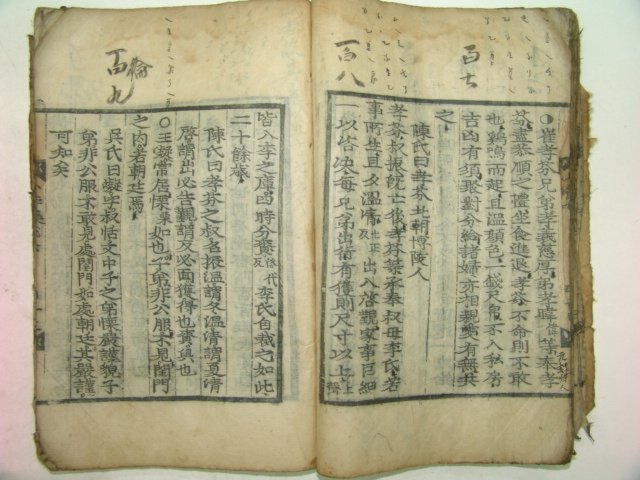 百七
百八
○崔孝芬兄弟孝義慈厚弟孝暐偉等奉孝
芬盡恭順之禮坐食進退孝芬不命則不敢
也鷄鳴而起且溫顔色一錢尺帛不入私房
吉凶有須聚對分給諸婦亦相親愛有無共
之
陳氏曰孝芬北朝博陵人
孝芬叔振旣亡後孝芬等承奉叔母李氏若
事所生旦夕溫凊七正反出入啓覲家事巨細
一以咨決每兄弟出行有獲則尺寸以上
百九
皆入李之庫四時分賚洛代反李氏自裁之如此
二十餘歲
陳氏曰孝芬之叔名振溫謂冬溫凊謂夏凊
啓謂出必告覲謂反必面獲得也賚與也
○王凝常居慄如也子弟非公服不見閨門
之內若朝廷焉
吳氏曰凝字叔恬文中子之弟慄嚴謹貌子
弟非公服不敢見處閨門如處朝廷其嚴謹
可知矣